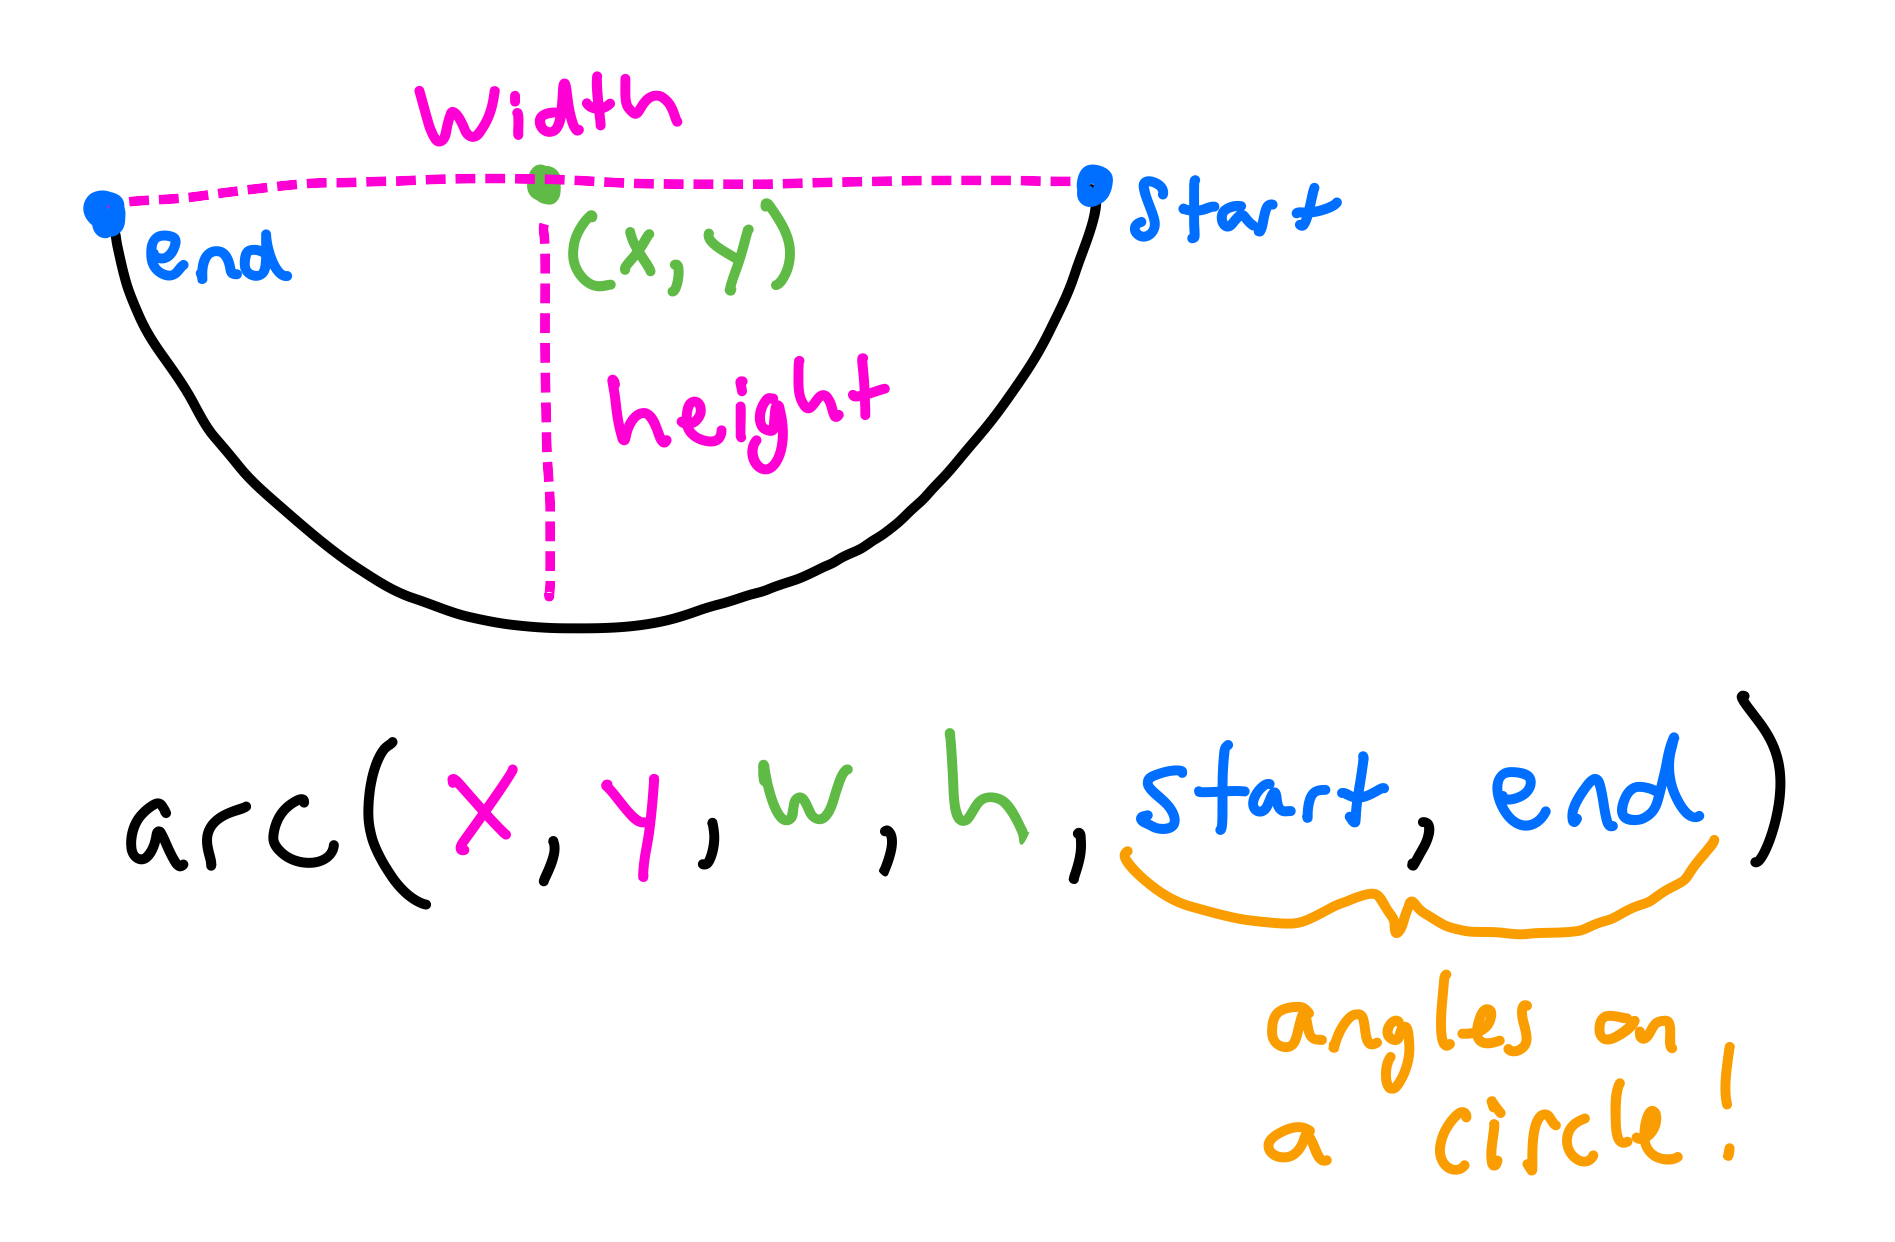 Width
end
(x, y)
start
height
arc(x, y, w, h, start, end)
angles on
a circle!